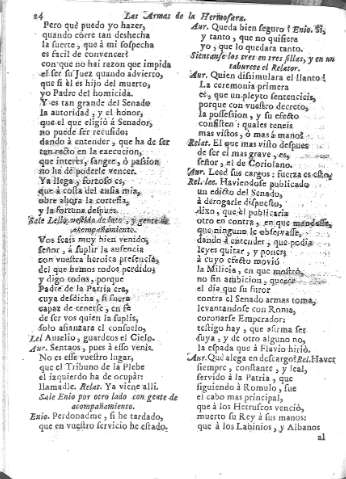 24 Las Armas de la Hermosura.
Pero què puedo yo hazer,
quando corre tan deshecha
la suerte, que à mi sospecha
es facil de convencer?
con que no hai razon que impida
el ser su Juez quando advierto,
que si èl es hijo del muerto,
yo Padre del homicida.
Y es tan grande del Senado
la autoridad, y el honor,
que el que eligiò à Senador,
no puede ser recusado;
dando à entender, que ha de ser
tan recto en la execucion,
que interès, sangre, ò passion
no ha de poderle vencer.
Ya llega, forzoso es,
que à costa del ansia mia,
obre ahora la cortesia,
y la fortuna despues.
Sale Lelio vestido de luto, y gente de
acompañamiento.
Vos seais muy bien venido,
Señor, à suplir la ausencia
con vuestra heroica presencia,
del que hemos todos perdido;
y digo todos, porque
Padre de la Patria era,
cuya desdicha, si fuera
capaz de tenerse, en fè
de ser vos quien la suplis,
solo afianzara el consuelo.
Lel Aurelio, guardeos el Cielo.
Aur. Sentaos, pues à esso venis.
No es esse vuestro lugar,
que el Tribuno de la Plebe
el izquierdo ha de ocupar:
llamadle. Relat. Ya viene alli.
Sale Enio por otro lado con gente de
acompañamiento.
Enio. Perdonadme, si he tardado,
que en vuestro servicio he estado.
Aur. Queda bien seguro? Enio. Sì,
y tanto, que no quisiera
yo, que lo quedara tanto.
Sientanse los tres en tres sillas, y en un
taburete el Relator.
Aur. Quien dissimulara el llanto!
La ceremonia primera
es, que un pleyto sentencieis,
porque con vuestro decreto,
la possession, y su efecto
consisten: quales teneis
mas vistos, ò mas à mano?
Relat. El que mas visto despues
de ser el mas grave, es,
señor, el de Coriolano.
Aur. Leed sus cargos: fuerza es
Rel. lee. Haviendose publicado
un edicto del Senado,
à derogarle dispuesto,
dixo, que èl publicaria
otro en contra, en que mandasse,
que ninguno le observasse,
dando à entender, que podia
leyes quitar, y poner;
à cuyo efecto moviò
la Milicia, en que mostrò,
no sin ambicion,
el dia que su furor
contra el Senado armas toma,
levantandose con Roma,
coronarse Emperador:
testigo hay, que afirma ser
suya, y de otro alguno no,
la espada que à Flavio hiriò.
Aur. Què alega en descargo? Rel. Haver
siempre, constante, y leal,
servido à la Patria, que
siguiendo à Romulo, fue
el cabo mas principal,
que à los Hetruscos venciò,
muerto su Rey à sus manos:
que à los Labinios, y Albanos
al